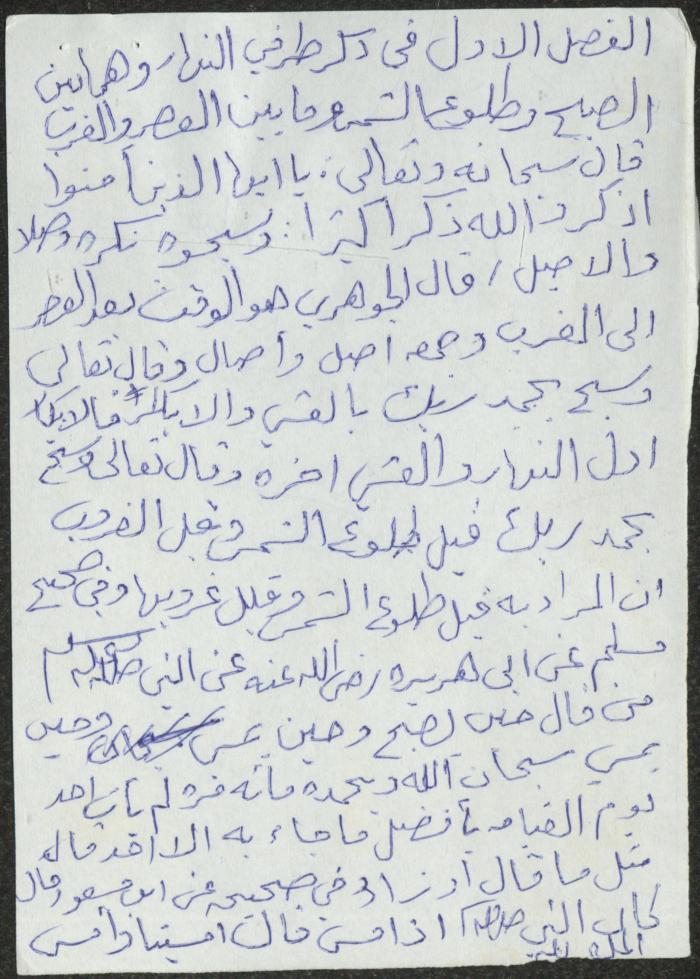 الفصل الاول في ذكر طرفي النهار وهما بين
الصبح وطلوع الشمس وما بين العصر والغرب
قال سبحانه وتعالى: يا ايها الذين آمنوا
اذكروا الله ذكرا كثيرا: وسبحوه بكره واصيلا
والاصيل / قال الجوهري هو الوقت بعد العصر
الى المغرب وجمعه اصل وأصال وقال تعالى
وسبح بحمد ربك بالعشي والابكار فالابكار
اول النهار والعشي اخره وقال تعالى وسبح
بحمد ربك قبل طلوع الشمس وقبل الغروب
ان المراد به قبل طلوع الشمس وقبل غروبها وفي صحيح
مسلم عن ابي هريره رضي الله عنه عن النبي صلى الله عليه وسلم
من قال حين يصبح وحين يمسي وحين
يمسي سبحان الله وبحمده مائه مره لم يأت احد
يوم القيامه بأفضل مما جاء به الا احد قال
مثل ما قال او زاد وفي صحيحه عن ابن مسعود قال
كان النبي صلى الله اذا امسى قال امسينا وأمسى
الملك لله